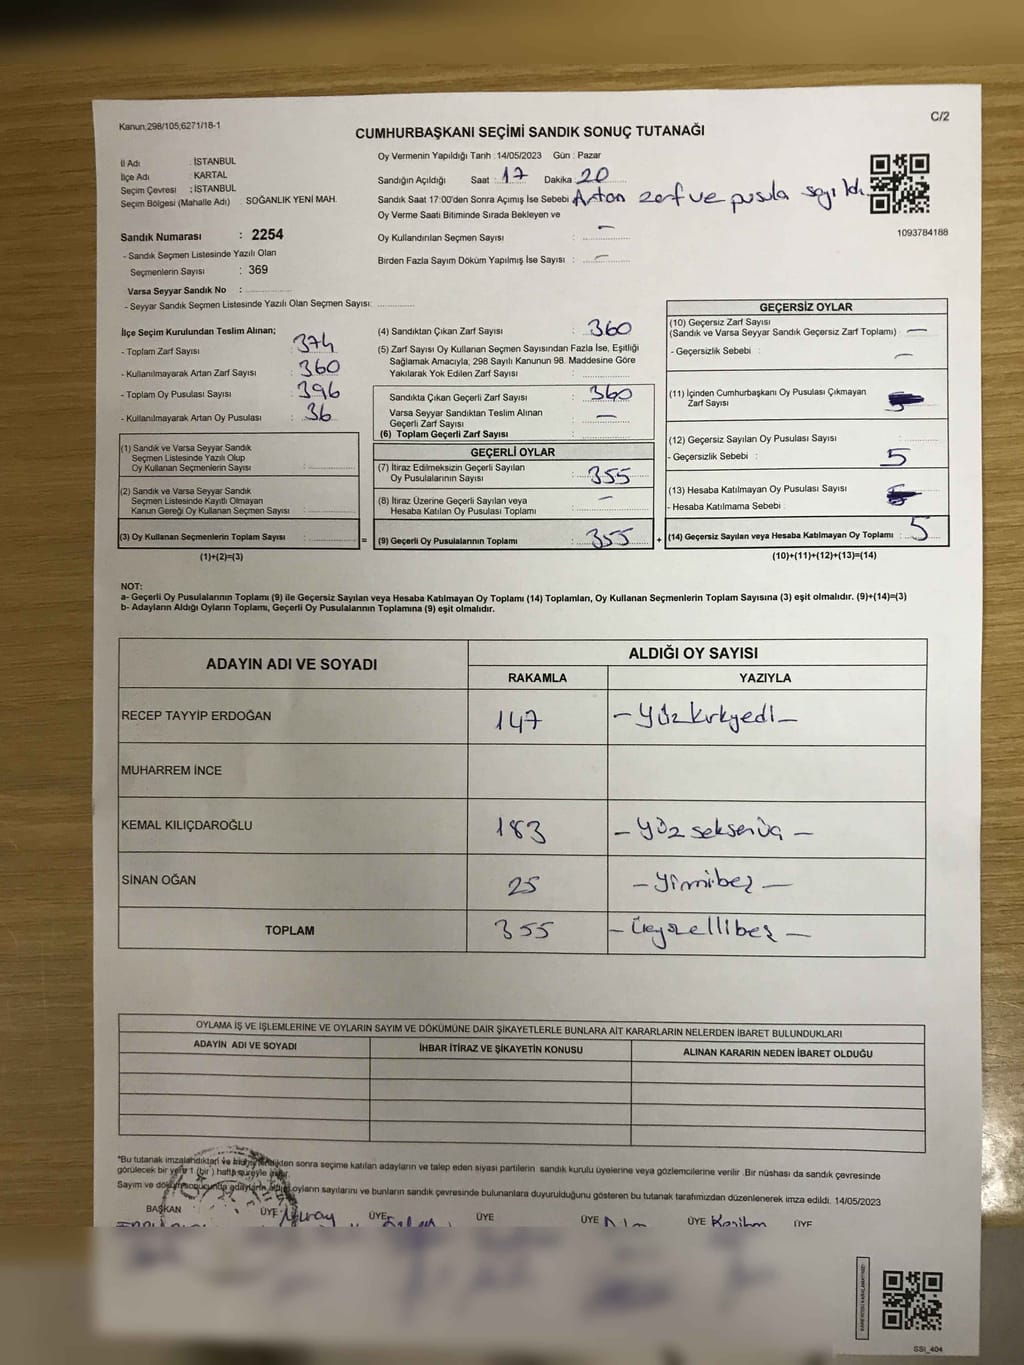 Kanun,298/105;6271/18-1
C/2
CUMHURBAŞKANI SEÇİMİ SANDIK SONUÇ TUTANAĞI
İl Adı : İSTANBUL
İlçe Adı : KARTAL
Seçim Çevresi : İSTANBUL
Seçim Bölgesi (Mahalle Adı) : SOĞANLIK YENİ MAH.
Oy Vermenin Yapıldığı Tarih :14/05/2023 Gün : Pazar
Sandığın Açıldığı Saat : 17 Dakika : 20
Sandık Saat 17:00'den Sonra Açımış İse Sebebi Artan zarf ve pusula sayıldı.
Oy Verme Saati Bitiminde Sırada Bekleyen ve
Oy Kullandırılan Seçmen Sayısı : —
Birden Fazla Sayım Döküm Yapılmış İse Sayısı : —
1093784188
Sandık Numarası : 2254
- Sandık Seçmen Listesinde Yazılı Olan
Seçmenlerin Sayısı : 369
Varsa Seyyar Sandık No :
- Seyyar Sandık Seçmen Listesinde Yazılı Olan Seçmen Sayısı:
İlçe Seçim Kurulundan Teslim Alınan;
- Toplam Zarf Sayısı : 374
- Kullanılmayarak Artan Zarf Sayısı : 360
- Toplam Oy Pusulası Sayısı : 396
- Kullanılmayarak Artan Oy Pusulası : 36
(1) Sandık ve Varsa Seyyar Sandık
Seçmen Listesinde Yazılı Olup
Oy Kullanan Seçmenlerin Sayısı :
(2) Sandık ve Varsa Seyyar Sandık
Seçmen Listesinde Kayıtlı Olmayan
Kanun Gereği Oy Kullanan Seçmen Sayısı :
(3) Oy Kullanan Seçmenlerin Toplam Sayısı : =
(1)+(2)=(3)
(4) Sandıktan Çıkan Zarf Sayısı : 360
(5) Zarf Sayısı Oy Kullanan Seçmen Sayısından Fazla İse, Eşitliği
Sağlamak Amacıyla, 298 Sayılı Kanunun 98. Maddesine Göre
Yakılarak Yok Edilen Zarf Sayısı :
Sandıkta Çıkan Geçerli Zarf Sayısı : 360
Varsa Seyyar Sandıktan Teslim Alınan
Geçerli Zarf Sayısı : —
(6) Toplam Geçerli Zarf Sayısı :
GEÇERLİ OYLAR
(7) İtiraz Edilmeksizin Geçerli Sayılan
Oy Pusulalarının Sayısı : 355
(8) İtiraz Üzerine Geçerli Sayılan veya
Hesaba Katılan Oy Pusulası Toplamı : —
(9) Geçerli Oy Pusulalarının Toplamı : 355 +
GEÇERSİZ OYLAR
(10) Geçersiz Zarf Sayısı
(Sandık ve Varsa Seyyar Sandık Geçersiz Zarf Toplamı) : —
- Geçersizlik Sebebi : —
(11) İçinden Cumhurbaşkanı Oy Pusulası Çıkmayan
Zarf Sayısı :
(12) Geçersiz Sayılan Oy Pusulası Sayısı :
- Geçersizlik Sebebi : 5
(13) Hesaba Katılmayan Oy Pusulası Sayısı :
- Hesaba Katılmama Sebebi :
(14) Geçersiz Sayılan veya Hesaba Katılmayan Oy Toplamı : 5
(10)+(11)+(12)+(13)=(14)
NOT:
a- Geçerli Oy Pusulalarının Toplamı (9) ile Geçersiz Sayılan veya Hesaba Katılmayan Oy Toplamı (14) Toplamları, Oy Kullanan Seçmenlerin Toplam Sayısına (3) eşit olmalıdır. (9)+(14)=(3)
b- Adayların Aldığı Oyların Toplamı, Geçerli Oy Pusulalarının Toplamına (9) eşit olmalıdır.
ADAYIN ADI VE SOYADI ALDIĞI OY SAYISI
RAKAMLA YAZIYLA
RECEP TAYYİP ERDOĞAN 147 – Yüzkırkyedi –
MUHARREM İNCE
KEMAL KILIÇDAROĞLU 183 – Yüz seksenüç –
SİNAN OĞAN 25 – Yirmibeş –
TOPLAM 355 – Üçyüzellibeş –
OYLAMA İŞ VE İŞLEMLERİNE VE OYLARIN SAYIM VE DÖKÜMÜNE DAİR ŞİKAYETLERLE BUNLARA AİT KARARLARIN NELERDEN İBARET BULUNDUKLARI
ADAYIN ADI VE SOYADI İHBAR İTİRAZ VE ŞİKAYETİN KONUSU ALINAN KARARIN NEDEN İBARET OLDUĞU
*Bu tutanak imzalandıktan ve sonra seçime katılan adayların ve talep eden siyasi partilerin sandık kurulu üyelerine veya gözlemcilerine verilir. Bir nüshası da sandık çevresinde
görülecek bir yere 1 (bir) hafta süreyle asılır.
Sayım ve döküm sonucunda adayların aldığı oyların sayılarını ve bunların sandık çevresinde bulunanlara duyurulduğunu gösteren bu tutanak tarafımızdan düzenlenerek imza edildi. 14/05/2023
BAŞKAN ÜYE ÜYE ÜYE ÜYE ÜYE ÜYE
SSI_404